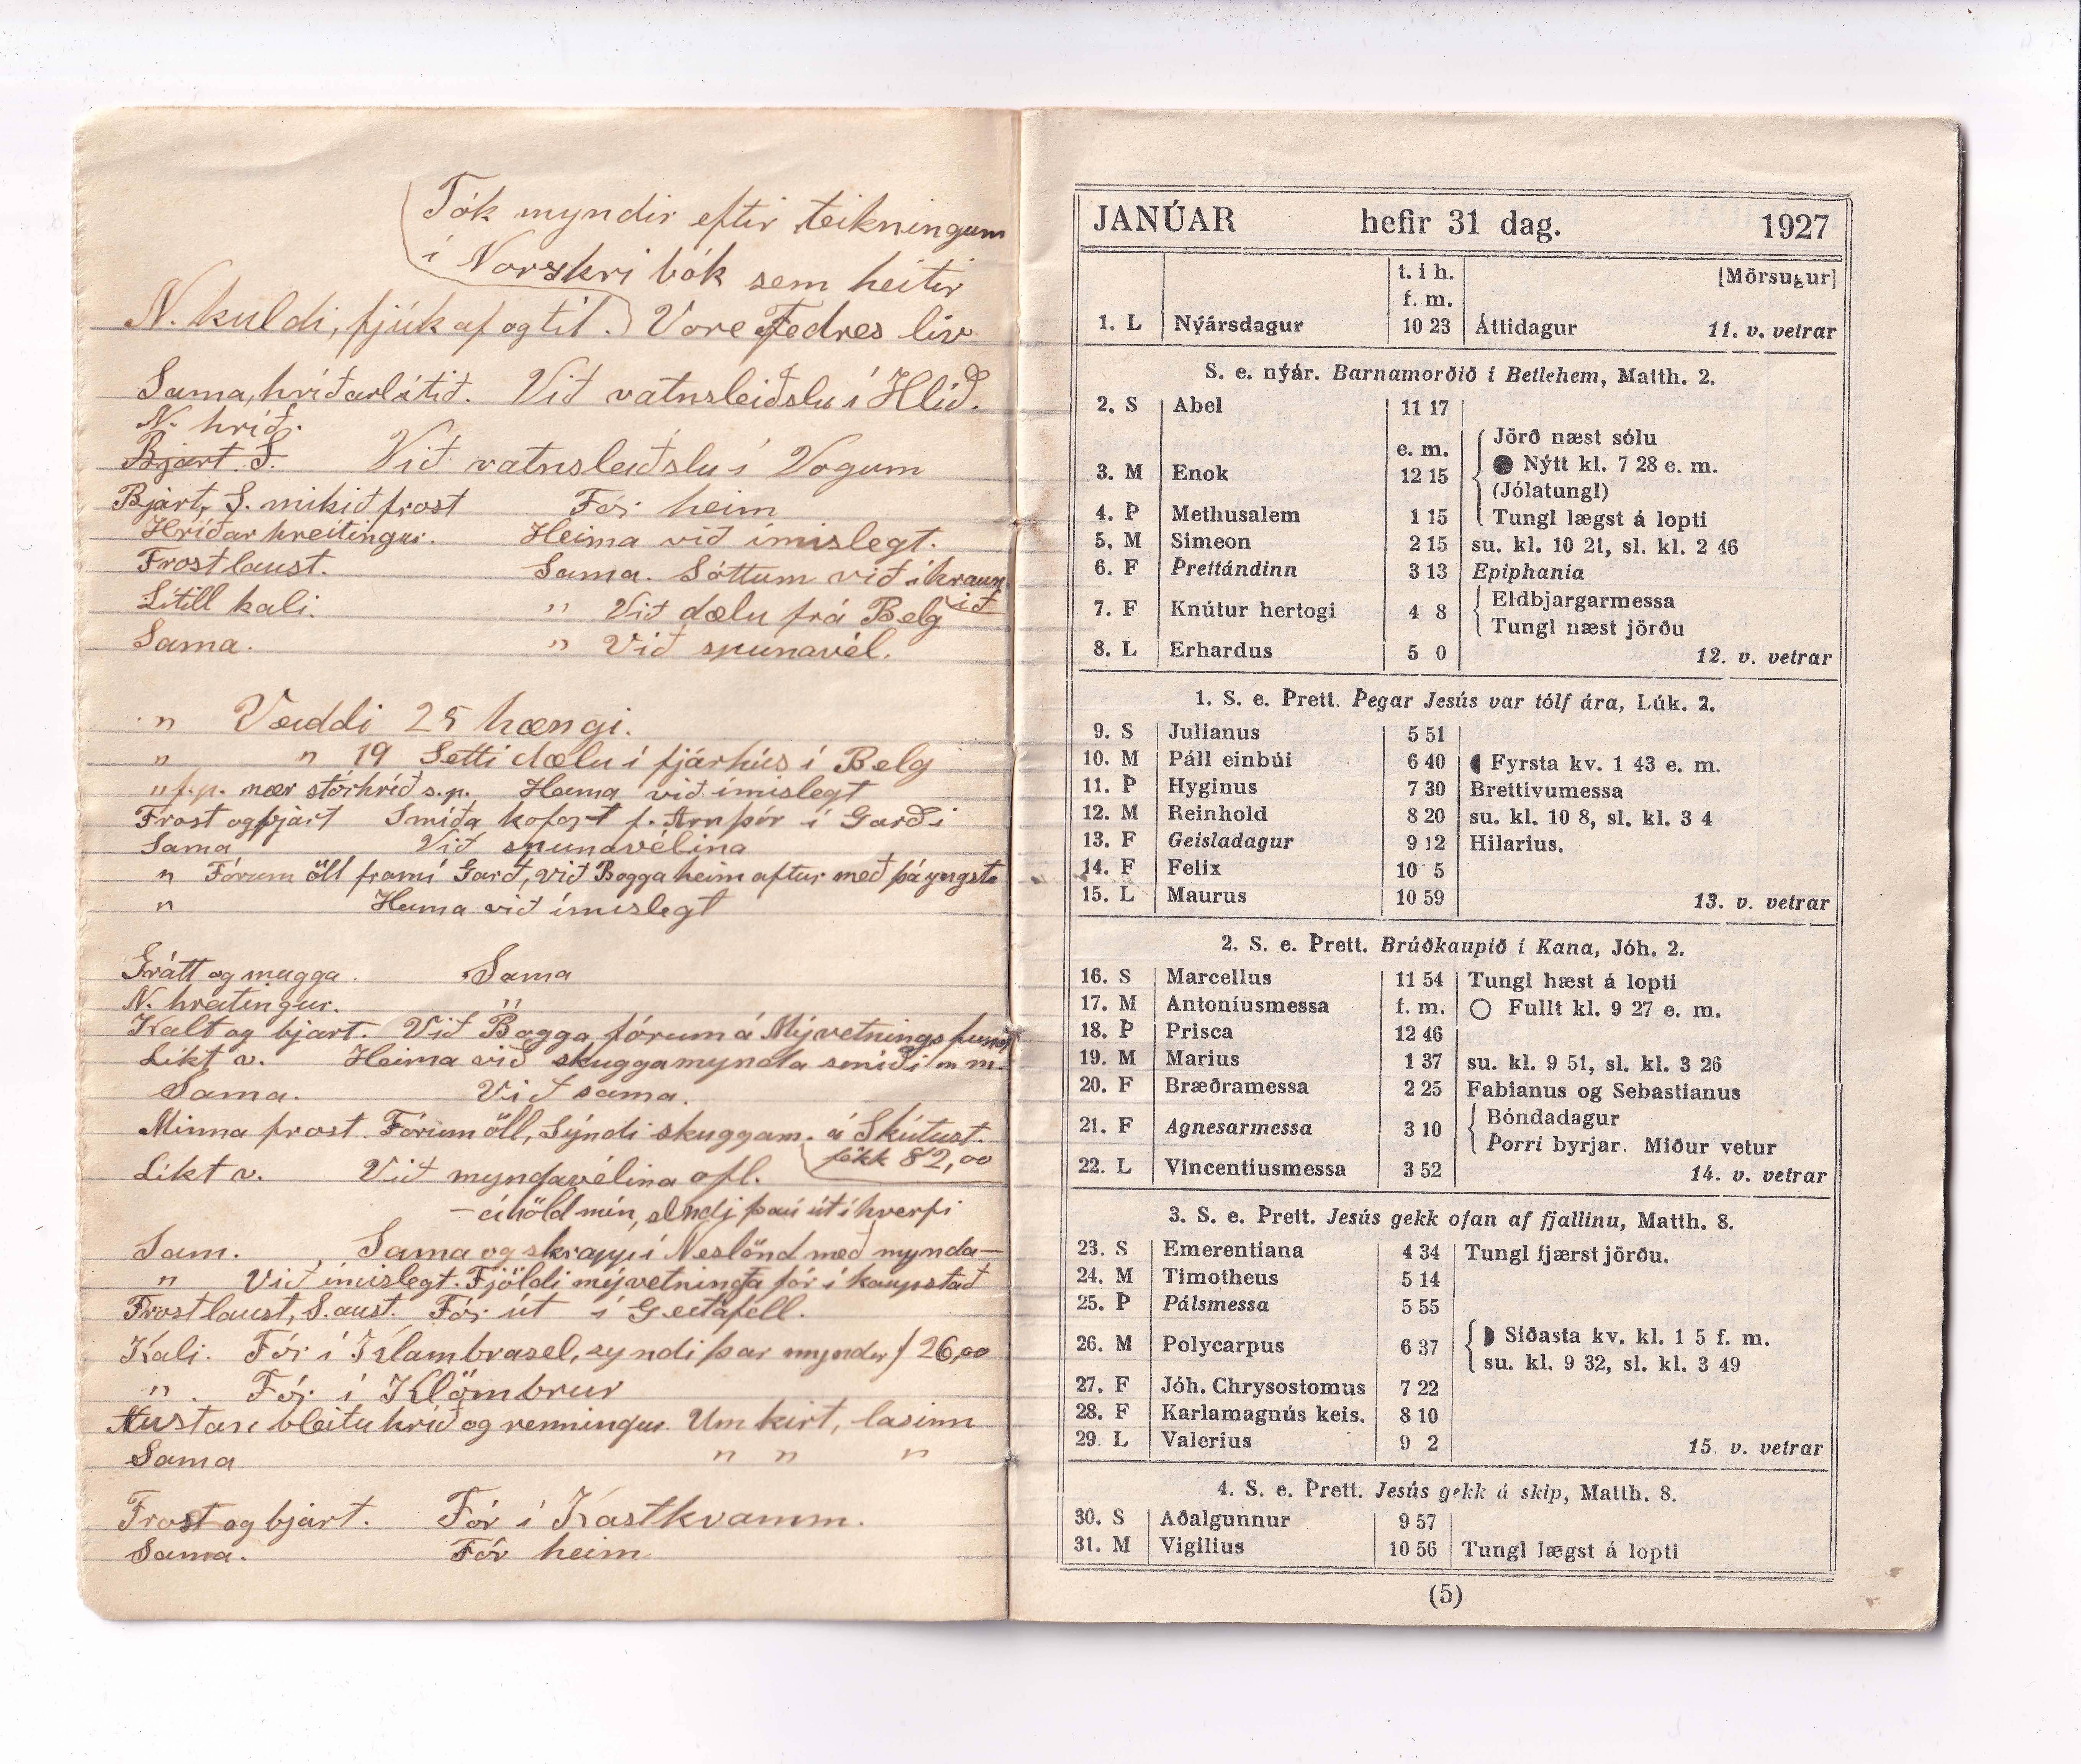 Tók myndir eftir teikningum
í Norskri bók sem heitir
N. kuldi, fjúk af og til. Vore Fedres liv
Sama, hríðarlítið. Við vatnsleiðslu í Hlíð.
N. hríð.
Bjart. S. Við vatnsleiðslu í Vogum
Bjart, S. mikið frost Fór heim
Hríðar hreitingur. Heima við ímislegt.
Frostlaust. Sama. Sóttum við í hraun
ið
Lítill kali. " Við dælu frá Belg
Sama. " Við spunavél.
" Veiddi 25 hængi.
" " 19 Setti dælu í fjárhús í Belg
" f.p. nær stórhríð s.p. Heima við ímislegt
Frost og bjart Smíða kofort f. Arnþór í Garði
Sama Við spunavélina
" Fórum öll fram í Garð, við Bogga heim aftur með þá yngste
" Heima við ímislegt
Frátt og mugga. Sama
N. hreitingur. "
Kalt og bjart. Við Bogga fórum á Mývetningafund
Líkt v. Heima við skuggamynda smíði m m.
Sama. Við sama.
Minna frost. Fórum öll, Sýndi skuggam. á Skútust.
fékk 82,00
Líkt v. Við myndavélina ofl.
– áhöld mín, sendi þau út í hverfi
Sam. Sama og skrapp í Neslönd með mynda–
" Við ímislegt. Fjöldi mývetninga fór í kaupstað
Frostlaust, S. aust. Fór út í Geitafell.
Kali. Fór í Klambrasel, syndi þar myndir f 26,00
" Fór í Klömbrur
Austan bleitu hríð og renningur. Um kirt, lasinn
Sama " " "
Frost og bjart. Fór í Kastkvamm.
Sama. Fór heim
JANÚAR hefir 31 dag. 1927
t. í h. [Mörsugur]
f. m.
1. L Nýársdagur 10 23 Áttidagur 11. v. vetrar
S. e. nýár. Barnamorðið í Betlehem, Matth. 2.
2. S Abel 11 17
Jörð næst sólu
e. m. ● Nýtt kl. 7 28 e. m.
3. M Enok 12 15
(Jólatungl)
4. Þ Methusalem 1 15 Tungl lægst á lopti
5. M Simeon 2 15 su. kl. 10 21, sl. kl. 2 46
6. F Þrettándinn 3 13 Epiphania
7. F Knútur hertogi 4 8 Eldbjargarmessa
Tungl næst jörðu
8. L Erhardus 5 0 12. v. vetrar
1. S. e. Þrett. Þegar Jesús var tólf ára, Lúk. 2.
9. S Julianus 5 51
10. M Páll einbúi 6 40 Fyrsta kv. 1 43 e. m.
11. Þ Hyginus 7 30 Brettivumessa
12. M Reinhold 8 20 su. kl. 10 8, sl. kl. 3 4
13. F Geisladagur 9 12 Hilarius.
14. F Felix 10 5
15. L Maurus 10 59 13. v. vetrar
2. S. e. Þrett. Brúðkaupið í Kana, Jóh. 2.
16. S Marcellus 11 54 Tungl hæst á lopti
17. M Antoníusmessa f. m. ○ Fullt kl. 9 27 e. m.
18. Þ Prisca 12 46
19. M Marius 1 37 su. kl. 9 51, sl. kl. 3 26
20. F Bræðramessa 2 25 Fabianus og Sebastianus
21. F Agnesarmessa 3 10 Bóndadagur
Þorri byrjar. Miður vetur
22. L Vincentíusmessa 3 52 14. v. vetrar
3. S. e. Þrett. Jesús gekk ofan af fjallinu, Matth. 8.
23. S Emerentiana 4 34 Tungl fjærst jörðu.
24. M Timotheus 5 14
25. Þ Pálsmessa 5 55
26. M Polycarpus 6 37 Síðasta kv. kl. 1 5 f. m.
su. kl. 9 32, sl. kl. 3 49
27. F Jóh. Chrysostomus 7 22
28. F Karlamagnús keis. 8 10
29. L Valerius 9 2 15. v. vetrar
4. S. e. Þrett. Jesús gekk á skip, Matth. 8.
30. S Aðalgunnur 9 57
31. M Vigilius 10 56 Tungl lægst á lopti
(5)